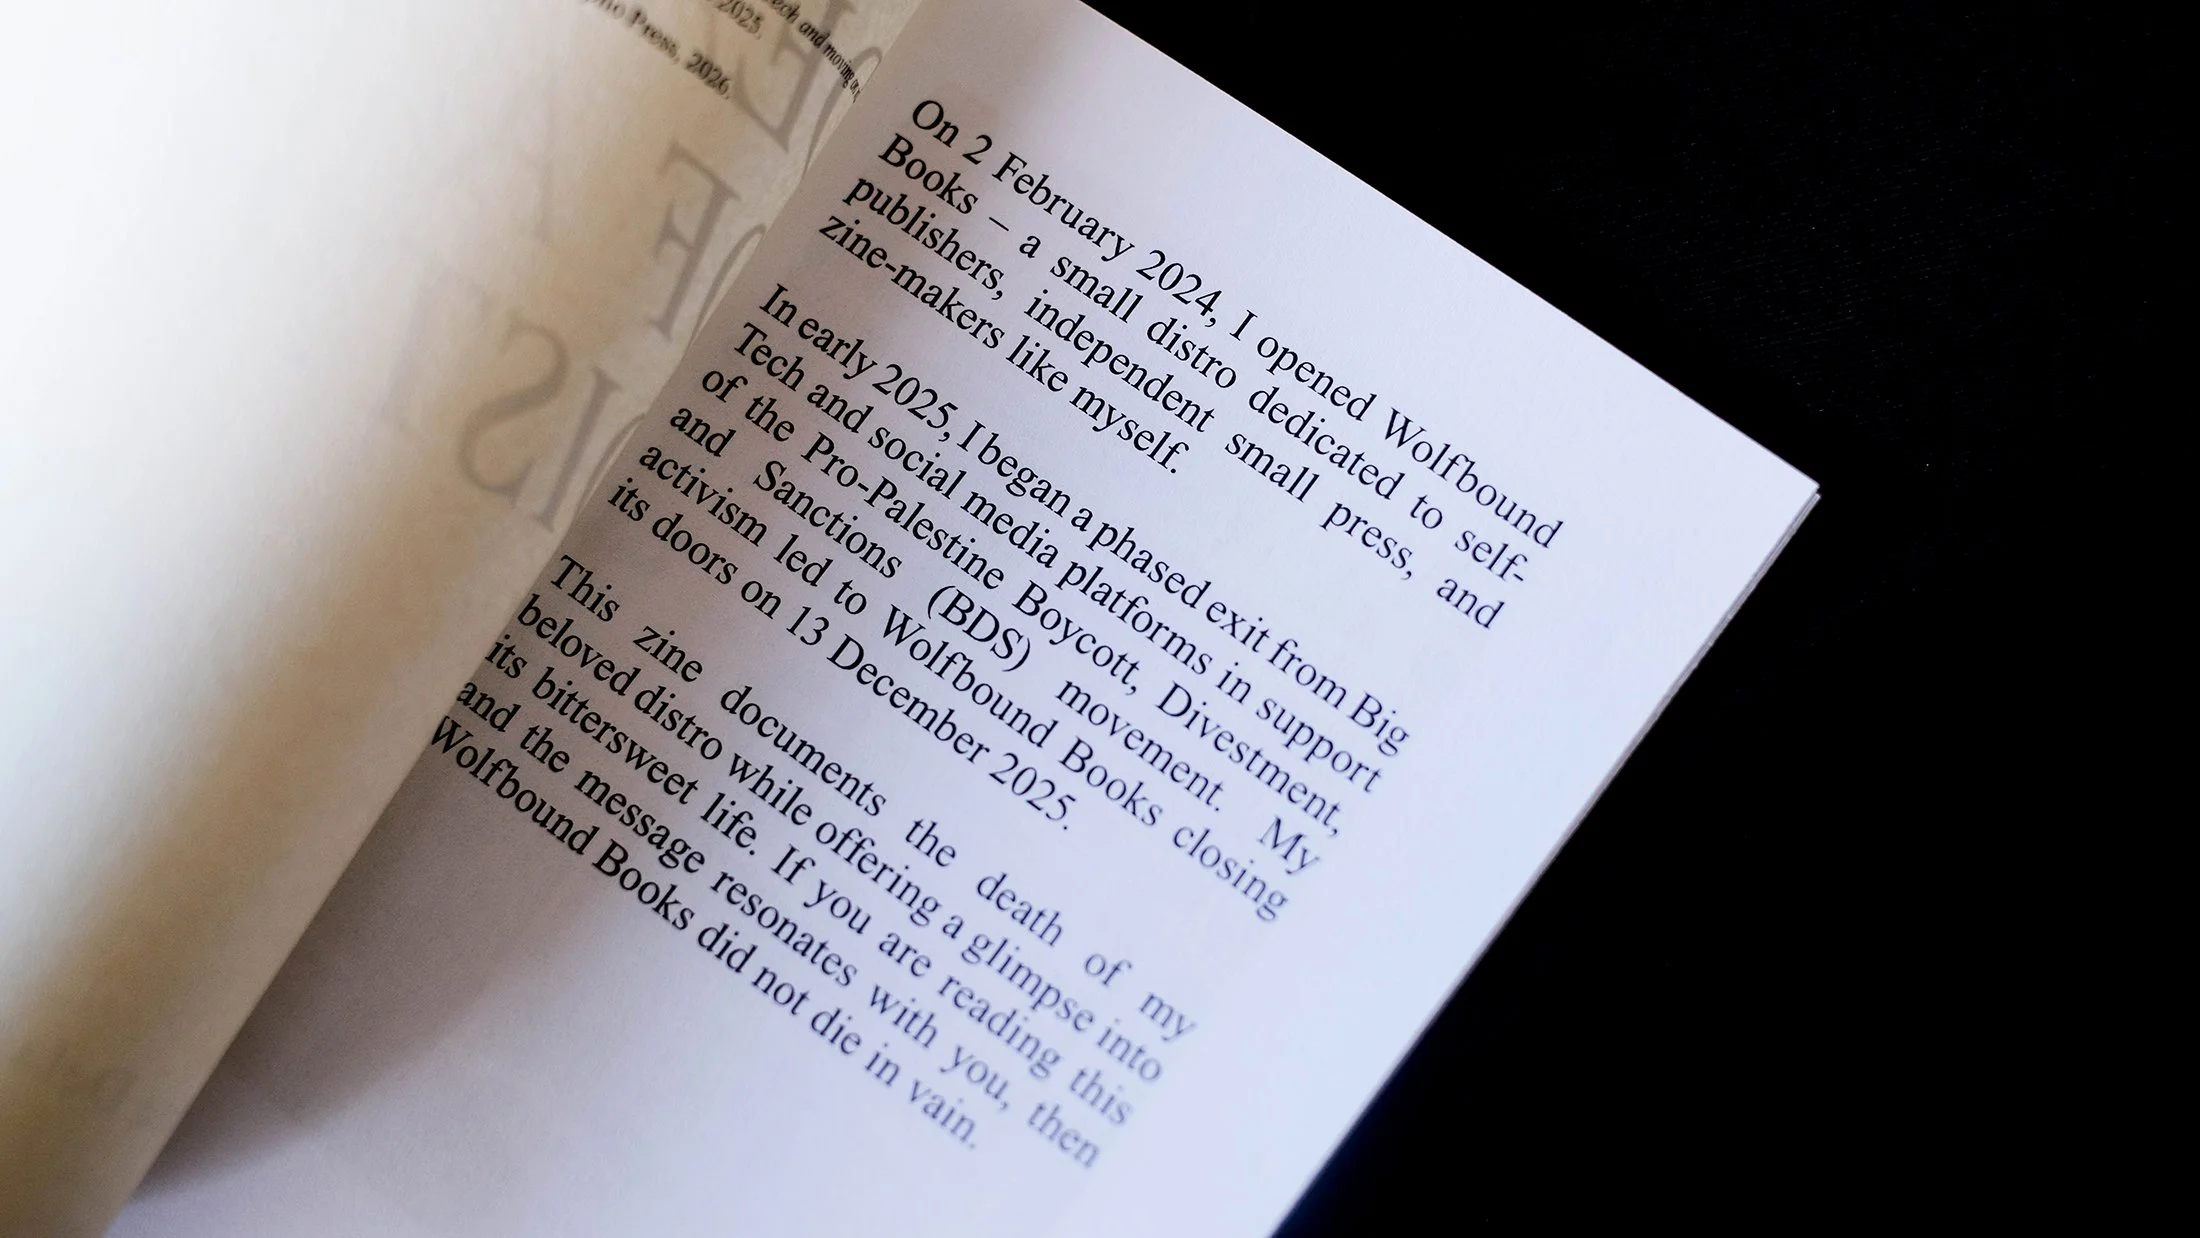 ech and moving on
2025.
Press, 2026.
On 2 February 2024, I opened Wolfbound
Books – a small distro dedicated to self-
publishers, independent small press, and
zine-makers like myself.
In early 2025, I began a phased exit from Big
Tech and social media platforms in support
of the Pro-Palestine Boycott, Divestment,
and Sanctions (BDS) movement. My
activism led to Wolfbound Books closing
its doors on 13 December 2025.
This zine documents the death of my
beloved distro while offering a glimpse into
its bittersweet life. If you are reading this
and the message resonates with you, then
Wolfbound Books did not die in vain.